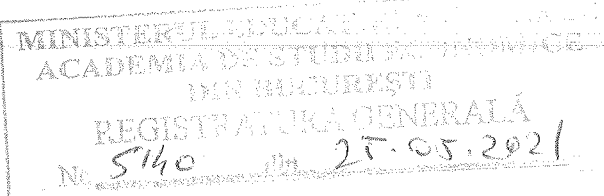 MINISTERUL EDUCAȚIEI
ACADEMIA DE STUDII ECONOMICE
DIN BUCUREȘTI
REGISTRATURA GENERALĂ
Nr. 5140 din 25.05.2021